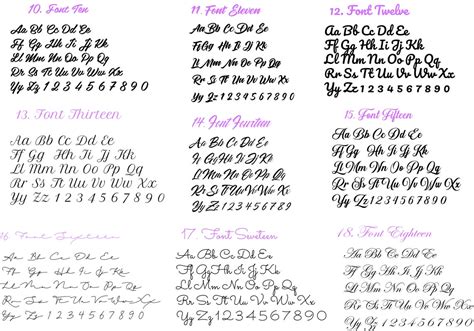 10. Font Ten
Aa Bb Cc Dd Ee
Ff Gg Hh Ii Jj Kk
Ll Mm Nn Oo Pp Qq
Rr Ss Tt Uu Vv Ww Xx
Yy Zz 1 2 3 4 5 6 7 8 9 0
11. Font Eleven
Aa Bb Cc Dd Ee
Ff Gg Hh Ii Jj Kk
Ll Mm Nn Oo Pp Qq
Rr Ss Tt Uu Vv Ww Xx
Yy Zz 1 2 3 4 5 6 7 8 9 0
12. Font Twelve
Aa Bb Cc Dd Ee
Ff Gg Hh Ii Jj Kk
Ll Mm Nn Oo Pp Qq
Rr Ss Tt Uu Vv Ww Xx
Yy Zz 1 2 3 4 5 6 7 8 9 0
13. Font Thirteen
Aa Bb Cc Dd Ee
Ff Gg Hh Ii Jj Kk
Ll Mm Nn Oo Pp Qq
Rr Ss Tt Uu Vv Ww Xx
Yy Zz 1 2 3 4 5 6 7 8 9 0
14. Font Fourteen
Aa Bb Cc Dd Ee
Ff Gg Hh Ii Jj Kk
Ll Mm Nn Oo Pp Qq
Rr Ss Tt Uu Vv Ww Xx
Yy Zz 1 2 3 4 5 6 7 8 9 0
15. Font Fifteen
Aa Bb Cc Dd Ee
Ff Gg Hh Ii Jj Kk
Ll Mm Nn Oo Pp Qq
Rr Ss Tt Uu Vv Ww Xx
Yy Zz 1 2 3 4 5 6 7 8 9 0
16. Font Sixteen
Aa Bb Cc Dd Ee
Ff Gg Hh Ii Jj Kk
Ll Mm Nn Oo Pp Qq
Rr Ss Tt Uu Vv Ww Xx
Yy Zz 1 2 3 4 5 6 7 8 9 0
17. Font
Aa Bb Cc Dd Ee
Ff Gg Hh Ii Jj Kk
Ll Mm Nn Oo Pp Qq
Rr Ss Tt Uu Vv Ww Xx
Yy Zz 1 2 3 4 5 6 7 8 9 0
18. Font Eighteen
Aa Bb Cc Dd Ee
Ff Gg Hh Ii Jj Kk
Ll Mm Nn Oo Pp Qq
Rr Ss Tt Uu Vv Ww Xx
Yy Zz 1 2 3 4 5 6 7 8 9 0